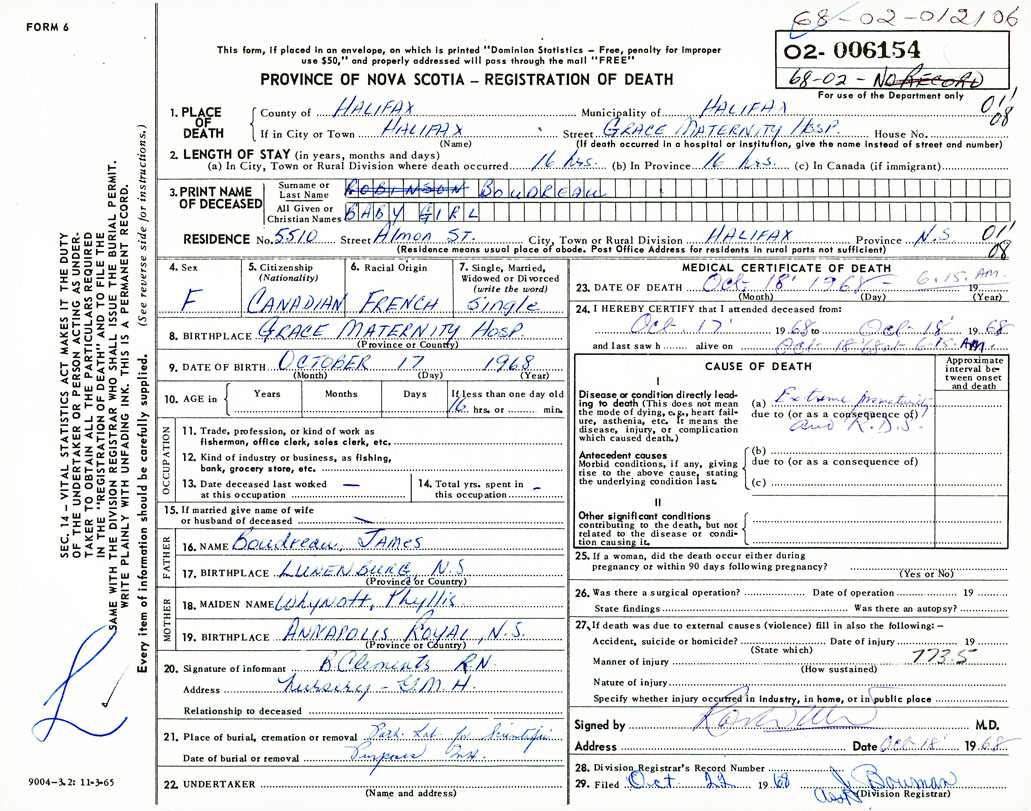 FORM 6
68-02-012106
This form, if placed in an envelope, on which is printed "Dominion Statistics – Free, penalty for improper
use $50," and properly addressed will pass through the mail "FREE"
PROVINCE OF NOVA SCOTIA – REGISTRATION OF DEATH
02- 006154
68-02- NO RECORD
For use of the Department only
011
08
1. PLACE OF DEATH
County of HALIFAX Municipality of HALIFAX
If in City or Town HALIFAX Street GRACE MATERNITY HOSP. House No.
(Name) (If death occurred in a hospital or institution, give the name instead of street and number)
2. LENGTH OF STAY (in years, months and days)
(a) In City, Town or Rural Division where death occurred 16 hrs. (b) In Province 16 hrs. (c) In Canada (if immigrant)
3. PRINT NAME OF DECEASED
Surname or Last Name ROBINSON BOUDREAU
All Given or Christian Names BABY GIRL
RESIDENCE No. 5510 Street Almon ST. City, Town or Rural Division HALIFAX Province N.S
(Residence means usual place of abode. Post Office Address for residents in rural parts not sufficient)
011
08
4. Sex
F
5. Citizenship
(Nationality)
CANADIAN
6. Racial Origin
FRENCH
7. Single, Married,
Widowed or Divorced
(write the word)
Single
8. BIRTHPLACE GRACE MATERNITY HOSP.
(Province or County)
9. DATE OF BIRTH OCTOBER 17 1968
(Month) (Day) (Year)
10. AGE in Years Months Days If less than one day old
16 hrs. or min.
OCCUPATION
11. Trade, profession, or kind of work as
fisherman, office clerk, sales clerk, etc.
12. Kind of industry or business, as fishing,
bank, grocery store, etc.
13. Date deceased last worked —
at this occupation
14. Total yrs. spent in –
this occupation
15. If married give name of wife
or husband of deceased
FATHER
16. NAME Boudreau, JAMES
17. BIRTHPLACE LUNENBURG N.S
(Province or Country)
MOTHER
18. MAIDEN NAME Whynott, Phyllis
19. BIRTHPLACE ANNAPOLIS ROYAL, N.S.
(Province or Country)
20. Signature of informant B Clements R.N.
Address Nursery – G.M.H.
Relationship to deceased
21. Place of burial, cremation or removal Path. Lab. for Scientific
Date of burial or removal Purposes
22. UNDERTAKER
(Name and address)
MEDICAL CERTIFICATE OF DEATH
23. DATE OF DEATH Oct- 18' 1968 – 6.15. AM. 19
(Month) (Day) (Year)
24. I HEREBY CERTIFY that I attended deceased from:
Oct- 17' 1968 to Oct- 18' 1968
and last saw h alive on Oct- 18' 68 at 6-15. AM.
CAUSE OF DEATH
Approximate
interval be-
tween onset
and death
I
Disease or condition directly lead-
ing to death (This does not mean
the mode of dying, e.g., heart fail-
ure, asthenia, etc. It means the
disease, injury, or complication
which caused death.)
(a) Extreme prematurity
due to (or as a consequence of)
and R.D.S.
Antecedent causes
Morbid conditions, if any, giving
rise to the above cause, stating
the underlying condition last.
(b)
due to (or as a consequence of)
(c)
II
Other significant conditions
contributing to the death, but not
related to the disease or condi-
tion causing it.
25. If a woman, did the death occur either during
pregnancy or within 90 days following pregnancy?
(Yes or No)
26. Was there a surgical operation? Date of operation 19
State findings Was there an autopsy?
27. If death was due to external causes (violence) fill in also the following: –
Accident, suicide or homicide? Date of injury 19
(State which)
773.5
Manner of injury
(How sustained)
Nature of injury
Specify whether injury occurred in Industry, in home, or in public place
Signed by M.D.
Address Date Oct- 18' 1968
28. Division Registrar's Record Number
29. Filed Oct 22 1968 Bowman
(Division Registrar)
SEC. 14 – VITAL STATISTICS ACT MAKES IT THE DUTY
OF THE UNDERTAKER OR PERSON ACTING AS UNDER-
TAKER TO OBTAIN ALL THE PARTICULARS REQUIRED
IN THE "REGISTRATION OF DEATH" AND TO FILE THE
SAME WITH THE DIVISION REGISTRAR WHO SHALL ISSUE THE BURIAL PERMIT.
WRITE PLAINLY WITH UNFADING INK. THIS IS A PERMANENT RECORD.
Every item of information should be carefully supplied. (See reverse side for instructions.)
9004–3.2: 11-3-65